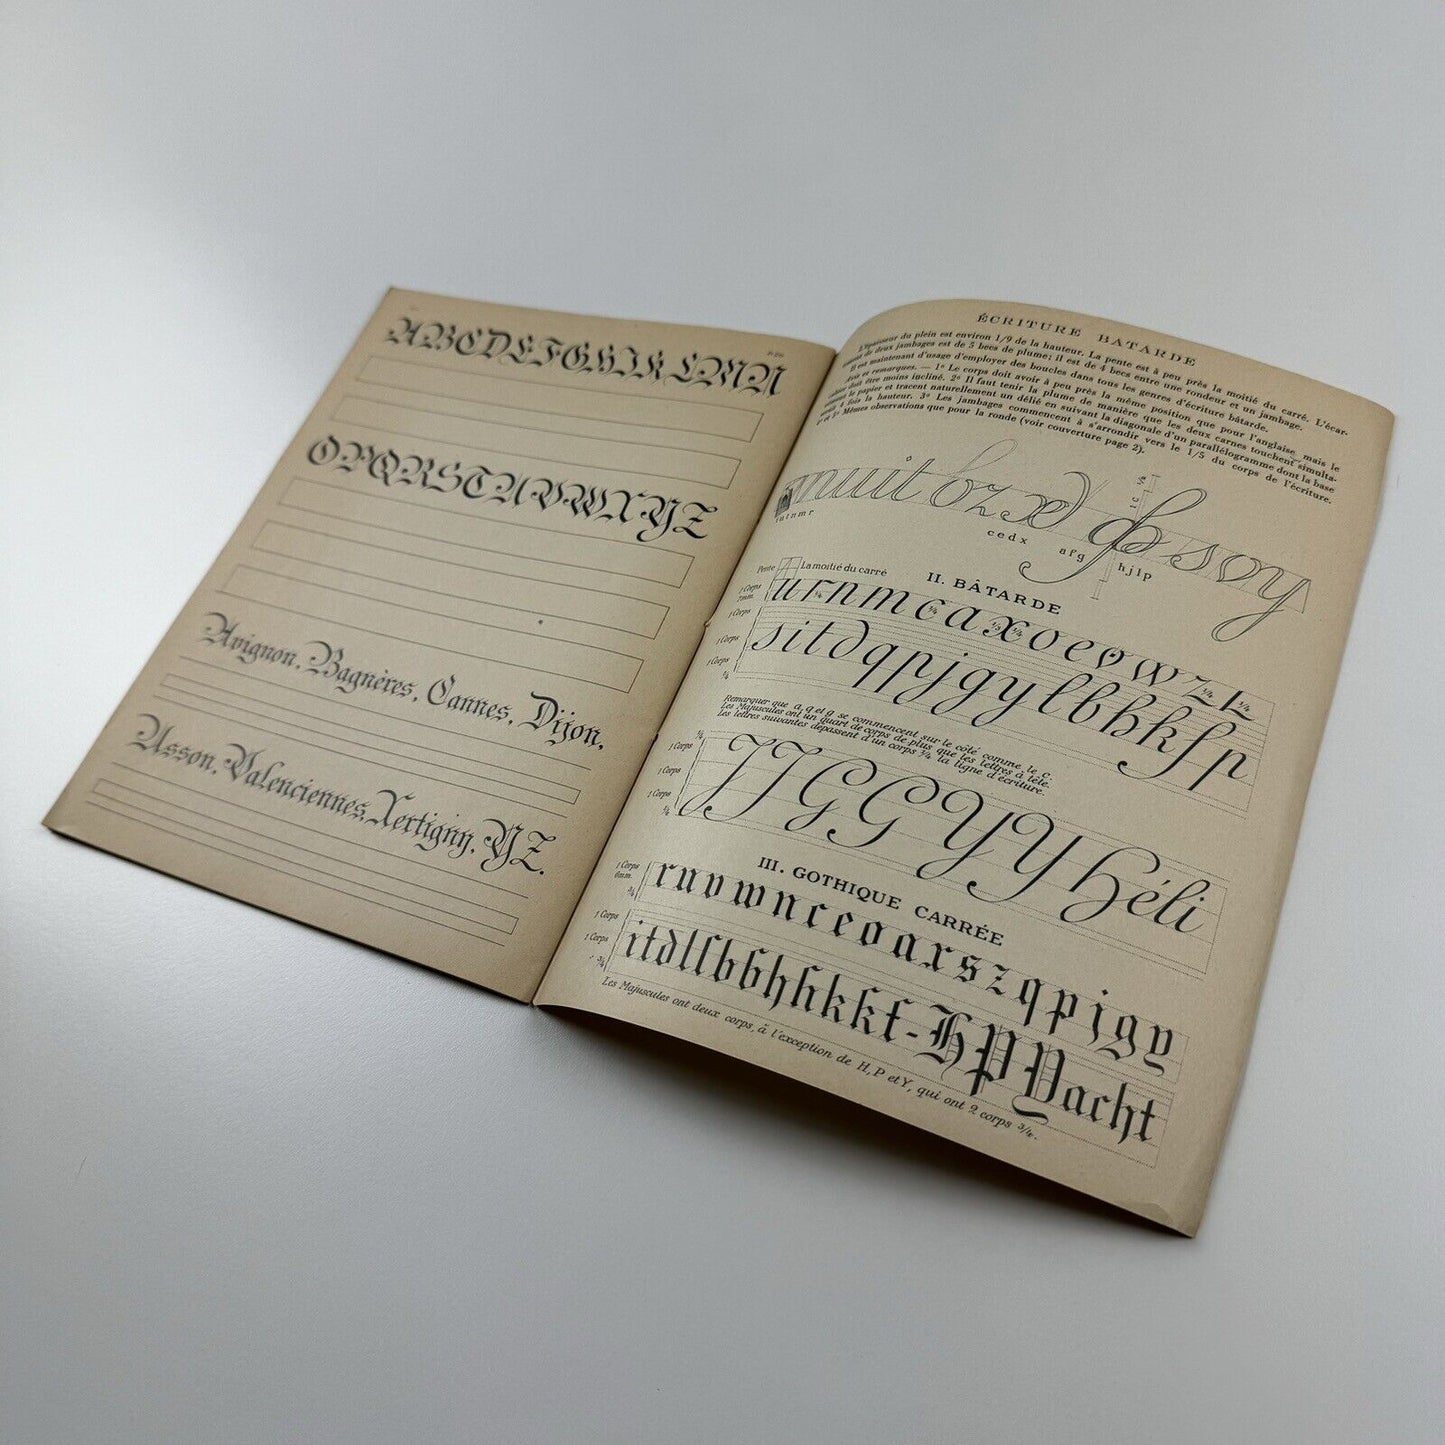 ABCDEFGHIKLMN
OPQRSTUVWXYZ
Avignon, Bagnères, Cannes, Dijon,
Usson, Valenciennes, Xertigny, YZ.
ÉCRITURE BATARDE
L'épaisseur du plein est environ 1/9 de la hauteur. La pente est à peu près la moitié du carré. L'écar-
de deux jambages est de 5 becs de plume; il est de 4 becs entre une rondeur et un jambage.
Il est maintenant d'usage d'employer des boucles dans tous les genres d'écriture bâtarde.
et remarques. — 1º Le corps doit avoir à peu près la même position que pour l'anglaise, mais le
doit être moins incliné. 2º Il faut tenir la plume de manière que les deux carnes touchent simulta-
le papier et tracent naturellement un délié en suivant la diagonale d'un parallélogramme dont la base
fois la hauteur. 3º Les jambages commencent à s'arrondir vers le 1/5 du corps de l'écriture.
Mêmes observations que pour la ronde (voir couverture page 2).
nuit
soy
c e d x
a f g
h j l p
II. BÂTARDE
Pente
La moitié du carré
1 Corps
urnmcaxoeovwz
1 Corps
1 Corps
sitdqpjgylbhkfp
Remarquer que a, q et g se commencent sur le côté comme le c.
Les Majuscules ont un quart de corps de plus que les lettres à tête.
Les lettres suivantes dépassent d'un corps 3/4 la ligne d'écriture.
1 Corps
1 Corps
1 Corps
JJGGYYHéli
III. GOTHIQUE CARRÉE
1 Corps
6mm.
3/4
ruvwnceoarxszqpjgy
1 Corps
1 Corps
3/4
HPYacht
Les Majuscules ont deux corps, à l'exception de H, P et Y, qui ont 2 corps 3/4.